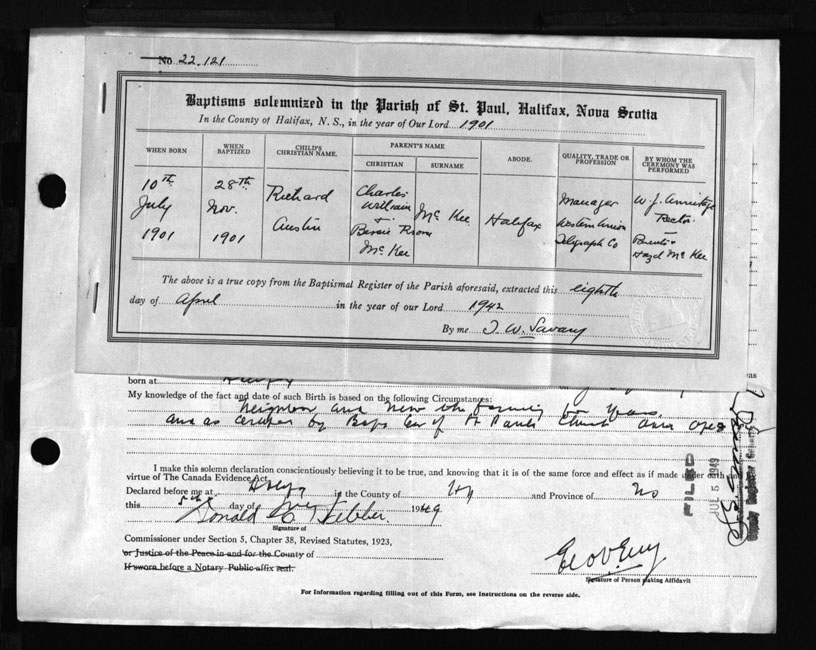 No 22.121
Baptisms solemnized in the Parish of St. Paul, Halifax, Nova Scotia
In the County of Halifax, N. S., in the year of Our Lord 1901
WHEN BORN
WHEN BAPTIZED
CHILD'S CHRISTIAN NAME.
PARENT'S NAME
CHRISTIAN
SURNAME
ABODE.
QUALITY, TRADE OR PROFESSION
BY WHOM THE CEREMONY WAS PERFORMED
10th
July
1901
28th
Nov.
1901
Richard
Austin
Charles
William
+
Bessie
McKee
McKee
Halifax
Manager
Western Union
Telegraph Co
W. J. Armitage
Rector
Hazel McKee
The above is a true copy from the Baptismal Register of the Parish aforesaid, extracted this eighth
day of April in the year of our Lord 1942
By me T. W. Savary
was
born at
My knowledge of the fact and date of such Birth is based on the following Circumstances:
Neighbor and knew the family for years,
and as certified by of St Pauls Church
I make this solemn declaration conscientiously believing it to be true, and knowing that it is of the same force and effect as if made under oath
virtue of The Canada Evidence Act.
Declared before me at in the County of and Province of
this 5th day of July 1949
Donald C Webber.
Signature of
Commissioner under Section 5, Chapter 38, Revised Statutes, 1923,
or Justice of the Peace in and for the County of
If sworn before a Notary Public affix seal.
Signature of Person making Affidavit
For Information regarding filling out of this Form, see Instructions on the reverse side.
FILED
JUL 5 1949